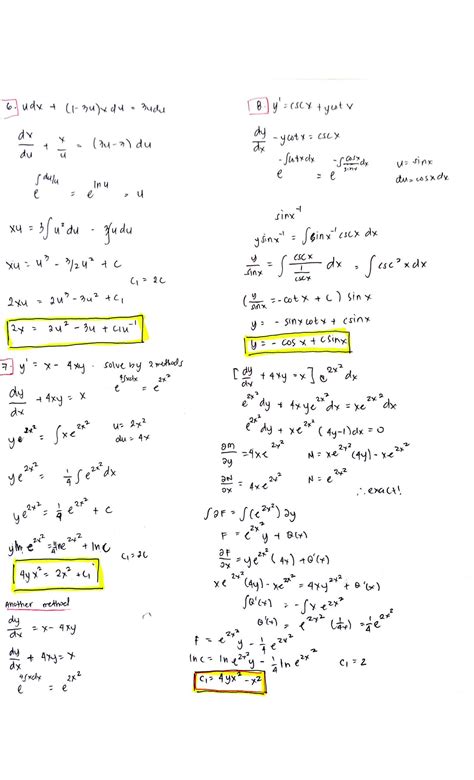 6. udx + (1-3u)xdu = 3udu
dx/du + x/u = (3u-3) du
e^∫du/u = e^lnu = u
xu = 3∫u²du - 3∫udu
xu = u³ - 3/2u² + C
C₁ = 2C
2xu = 2u³ - 3u² + C₁
2x = 2u² - 3u + C₁u⁻¹
7. y' = x - 4xy - solve by 2 methods
dy/dx + 4xy = x
e^4∫xdx = e^2x²
ye^2x² = ∫xe^2x²
u = 2x²
du = 4x
ye^2x² = 1/4 ∫e^2x² dx
ye^2x² = 1/4 e^2x² + C
C₁ = 2C
4yx² = 2x² + C₁
Another method
dy/dx = x - 4xy
dy/dx + 4xy = x
e^4∫xdx = e^2x²
8. y' = cscx + ycotx
dy/dx - ycotx = cscx
e^-∫cotxdx = e^-∫cosx/sinx dx
u = sinx
du = cosxdx
sinx⁻¹
ysinx⁻¹ = ∫sinx⁻¹ cscx dx
y/sinx = ∫ cscx / 1/cscx dx = ∫csc²xdx
(y/sinx = -cotx + C) sinx
y = -sinxcotx + csinx
y = -cosx + csinx
[dy/dx + 4xy = x] e^2x² dx
e^2x² dy + 4xye^2x² dx = xe^2x² dx
e^2x² dy + xe^2x² (4y-1)dx = 0
∂M/∂y = 4xe^2x²
N = xe^2x²(4y) - xe^2x²
∂N/∂x = 4xe^2x²
N = e^2x²
∴ exact!
∫∂F = ∫(e^2x²)∂y
F = e^2x² y + Q(x)
∂F/∂x = ye^2x²(4x) + Q'(x)
xe^2x²(4y) - xe^2x² = 4xye^2x² + Q'(x)
∫Q'(x) = -∫xe^2x²
F = e^2x² y - 1/4 e^2x²
lnC = lne^2x² y - 1/4 lne^2x²
C₁ = 2
C₁ = 4yx² - x²